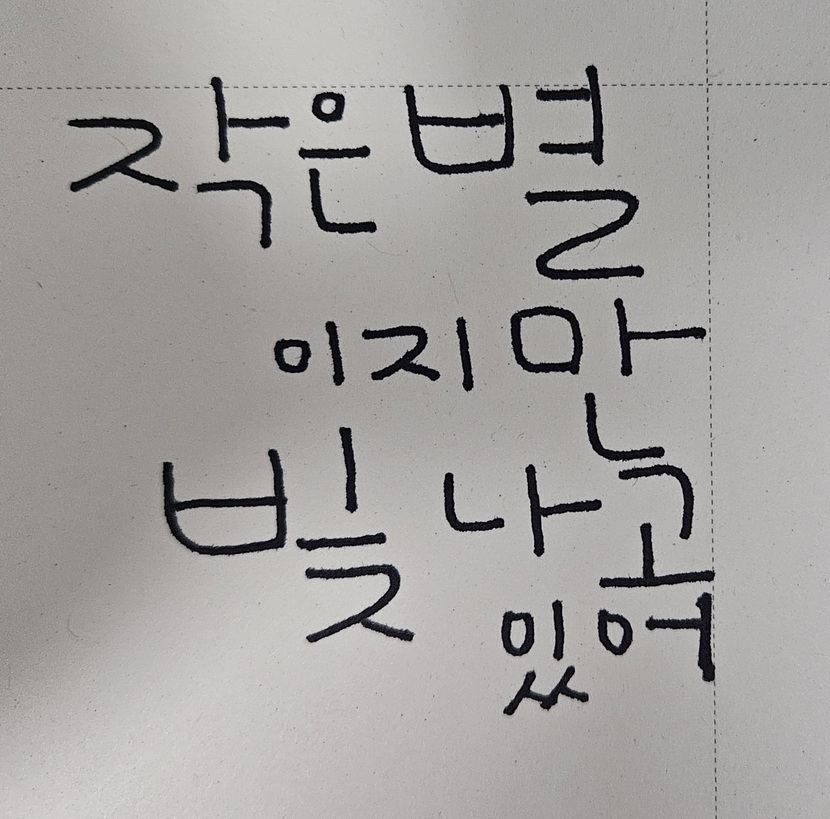 작은별
이지만
빛나고
있어